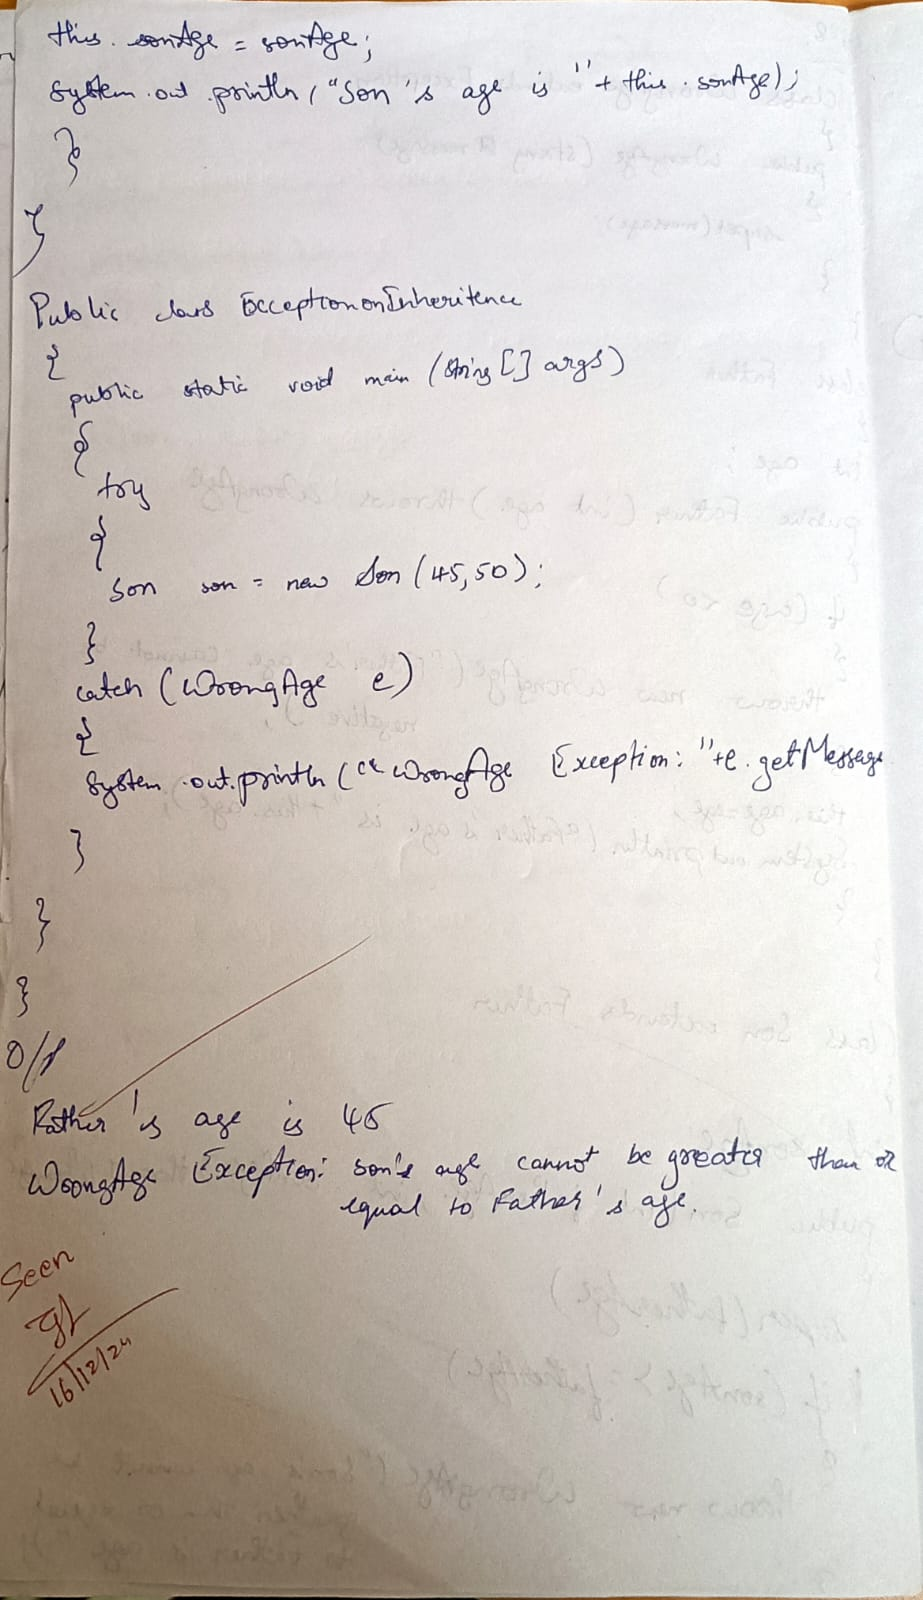 this. sonAge = sonAge;
System.out.println("Son's age is "+ this.sonAge);
}
}
Public class ExceptiononInheritence
{
public static void main (String [] args)
{
try
{
Son son = new Son (45,50);
}
catch (WrongAge e)
{
System.out.println ("WrongAge Exception: "+e.getMessage
}
}
}
O/P
Father's age is 45
WrongAge Exception: son's age cannot be greater than or
equal to Father's age.
Seen
16/12/24